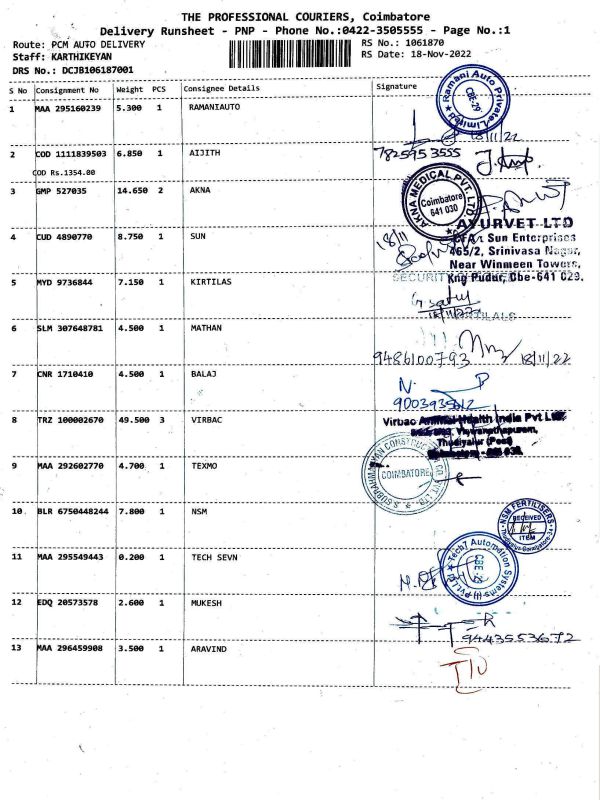 THE PROFESSIONAL COURIERS, Coimbatore
Delivery Runsheet - PNP - Phone No.:0422-3505555 - Page No.:1
Route: PCM AUTO DELIVERY
RS No.: 1061870
Staff: KARTHIKEYAN
RS Date: 18-Nov-2022
DRS No.: DCJB106187001
S No Consignment No Weight PCS Consignee Details Signature
1 MAA 295160239 5.300 1 RAMANIAUTO
Ramani Auto Private Limited
CBE-29
18/11/22
2 COD 1111839503 6.850 1 AIJITH 7825953555
COD Rs.1354.00
3 GMP 527035 14.650 2 AKNA
AKNA MEDICAL PVT. LTD
Coimbatore
641 030
4 CUD 4890770 8.750 1 SUN
18/11
AYURVET LTD
C/FA: Sun Enterprises
465/2, Srinivasa Nagar,
Near Winmeen Towers,
Kng Pudur, Cbe-641 029.
5 MYD 9736844 7.150 1 KIRTILAS
SECURITY
18/11/22
KIRTILALS
6 SLM 307648781 4.500 1 MATHAN
9486100793 18/11/22
7 CNR 1710410 4.500 1 BALAJ
8 TRZ 100002670 49.500 3 VIRBAC
Virbac Animal Health India Pvt Ltd
Thudiyalur (Post)
9 MAA 292602770 4.700 1 TEXMO
S.SUBRAHMANYAN CONSTRUCTION CO. PVT. LTD.
COIMBATORE
10. BLR 6750448244 7.800 1 NSM
NSM FERTILISERS
RECEIVED
ITEM
11 MAA 295549443 0.200 1 TECH SEVN
Tech7 Automotion Systems (I) Pvt Ltd
CBE-29
12 EDQ 20573578 2.600 1 MUKESH
9443553672
13 MAA 296459908 3.500 1 ARAVIND